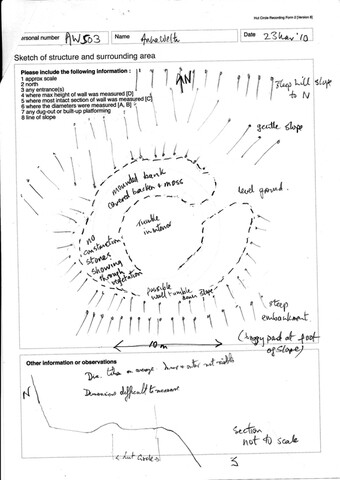 Hut Circle Recording Form 2 [Version 8]
Personal number AW503 Name Anne Date 23 Mar '10
Sketch of structure and surrounding area
Please include the following information :
1 approx scale
2 north
3 any entrance(s)
4 where max height of wall was measured [D]
5 where most intact section of wall was measured [C]
6 where the diameters were measured [A, B]
7 any dug-out or built-up platforming
8 line of slope
N
steep hill slope
to N
gentle slope
mounded bank
covered bracken + moss
level ground.
rubble
in interior
no
construction
stones
showing
through
vegetation
possible
wall tumble down slope
steep
embankment.
10m
(boggy part at foot
of slope)
Other information or observations
Dia. taken on average inner + outer not visible
Dimensions difficult to measure
N
section
not to scale
< hut circle >
S